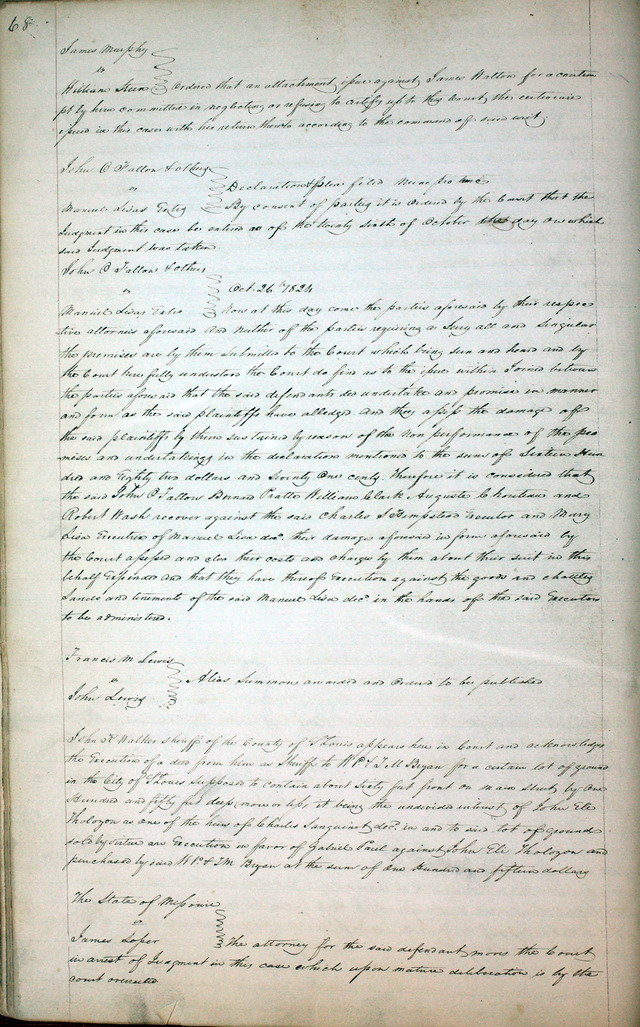 68
James Murphy
vs
William Stein Ordered that an attachment issue against James Walton for a contem
pt by him committed in neglecting or refusing to certify up to this Court the certiorari
issued in this case with his return thereto according to the command of said writ
John O Fallon & others
vs Declaration & plea filed nunc pro tunc
Manuel Lisas Exrs By consent of parties it is ordered by the Court that the
Judgment in this case be entered as of the twenty sixth of October day on which
said Judgment was taken
John O Fallon & others
vs Oct. 26th 1824
Manuel Lisas Exrs Now at this day come the parties aforesaid by their respec
tive attorneis aforesaid and neither of the parties requiring a Jury all and singular
the premises are by them submitted to the Court which being seen and heard and by
the Court here fully understood the Court do find as to the issue within Joined between
the parties aforesaid that the said defendants did undertake and promise in manner
and form as the said plaintiffs have alledged and they assess the damage of
the said plaintiffs by them sustained by reason of the non performance of the pro
mises and undertakings in the declaration mentioned to the sum of Sixteen Hun
dred and Eighty two dollars and Seventy One cents. Therefore it is considered that
the said John O Fallon Bernard Pratte William Clark Auguste Chouteau and
Robert Wash recover against the said Charles S Hempstead Executor and Mary
Lisa Executrix of Manuel Lisa decd their damages aforesaid in form aforesaid by
the Court assessed and also their costs and charges by them about their suit in this
behalf Expended and that they have thereof Execution against the goods and chattles
Lands and tenements of the said Manuel Lisa decd in the hands of the said Executors
to be administered.
Francis M Lewis
vs Alias Summons awarded and ordered to be published
John Lewis
John K Walker sheriff of the County of St Louis appears here in Court and acknowledges
the Execution of a deed from him as Sheriff to W P. & J M Bryan for a certain lot of ground
in the City of St Louis Supposed to contain about Sixty feet front on main street by One
Hundred and fifty feet deep more or less it being the undivided interest of John Ele
Tholozon as one of the heirs of Charles Sanguinet decd in and to said lot of ground
sold by virtue an Execution in favor of Gabriel Paul against John Ele Tholozon and
purchased by said W P. & J M Bryan at the sum of One Hundred and fifteen dollars
The State of Missouri
vs
James Loper The attorney for the said defendant moves the Court
in arrest of Judgment in this case which upon mature deliberation is by the
court overruled